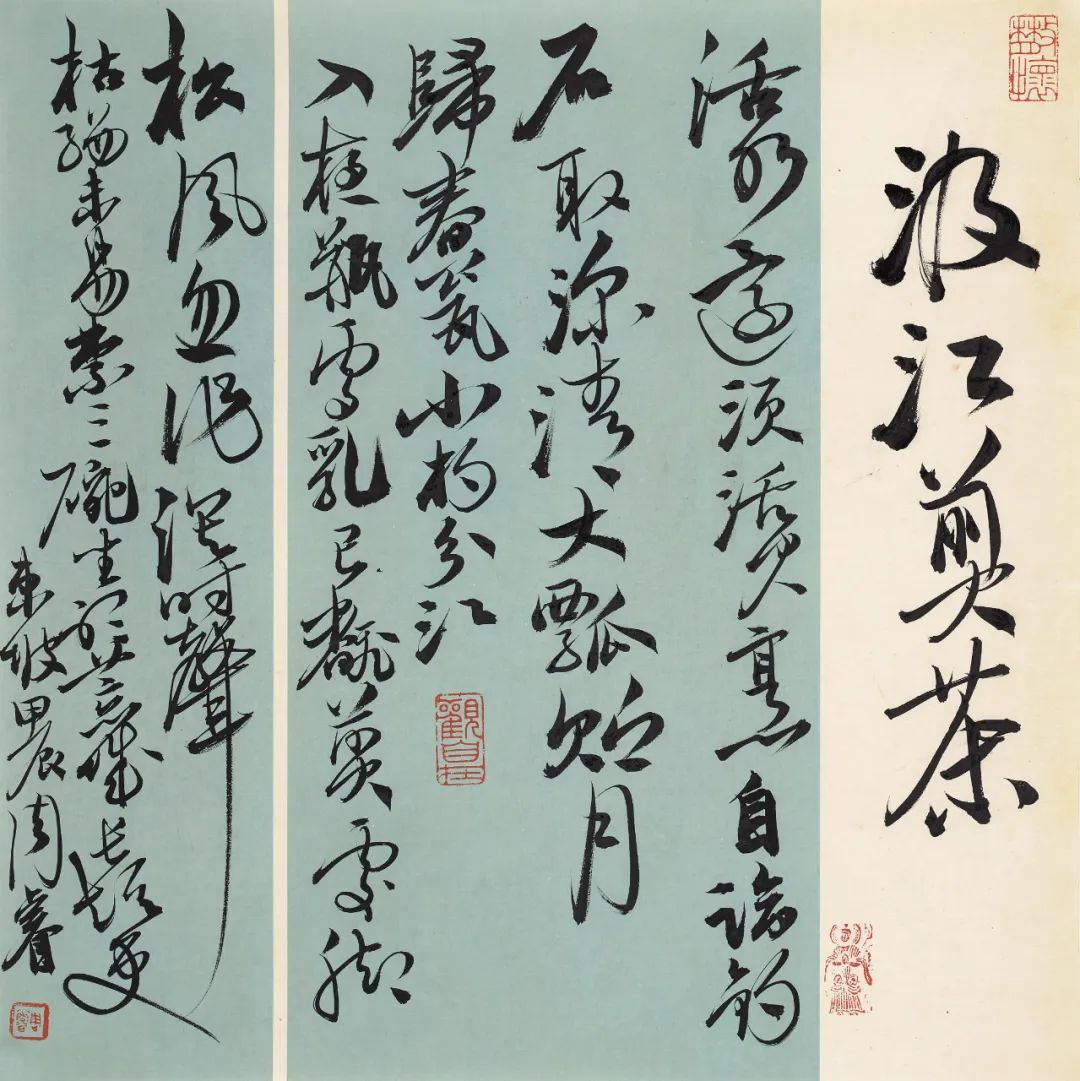 汲江煎茶
活水還須活火烹自臨釣
石取深清大瓢貯月
歸春甕小杓分江
觀自在
入夜瓶雪乳已翻煎處腳
松風忽作瀉時聲
枯腸未易禁三碗坐聽荒城長短更
東坡甲辰周睿